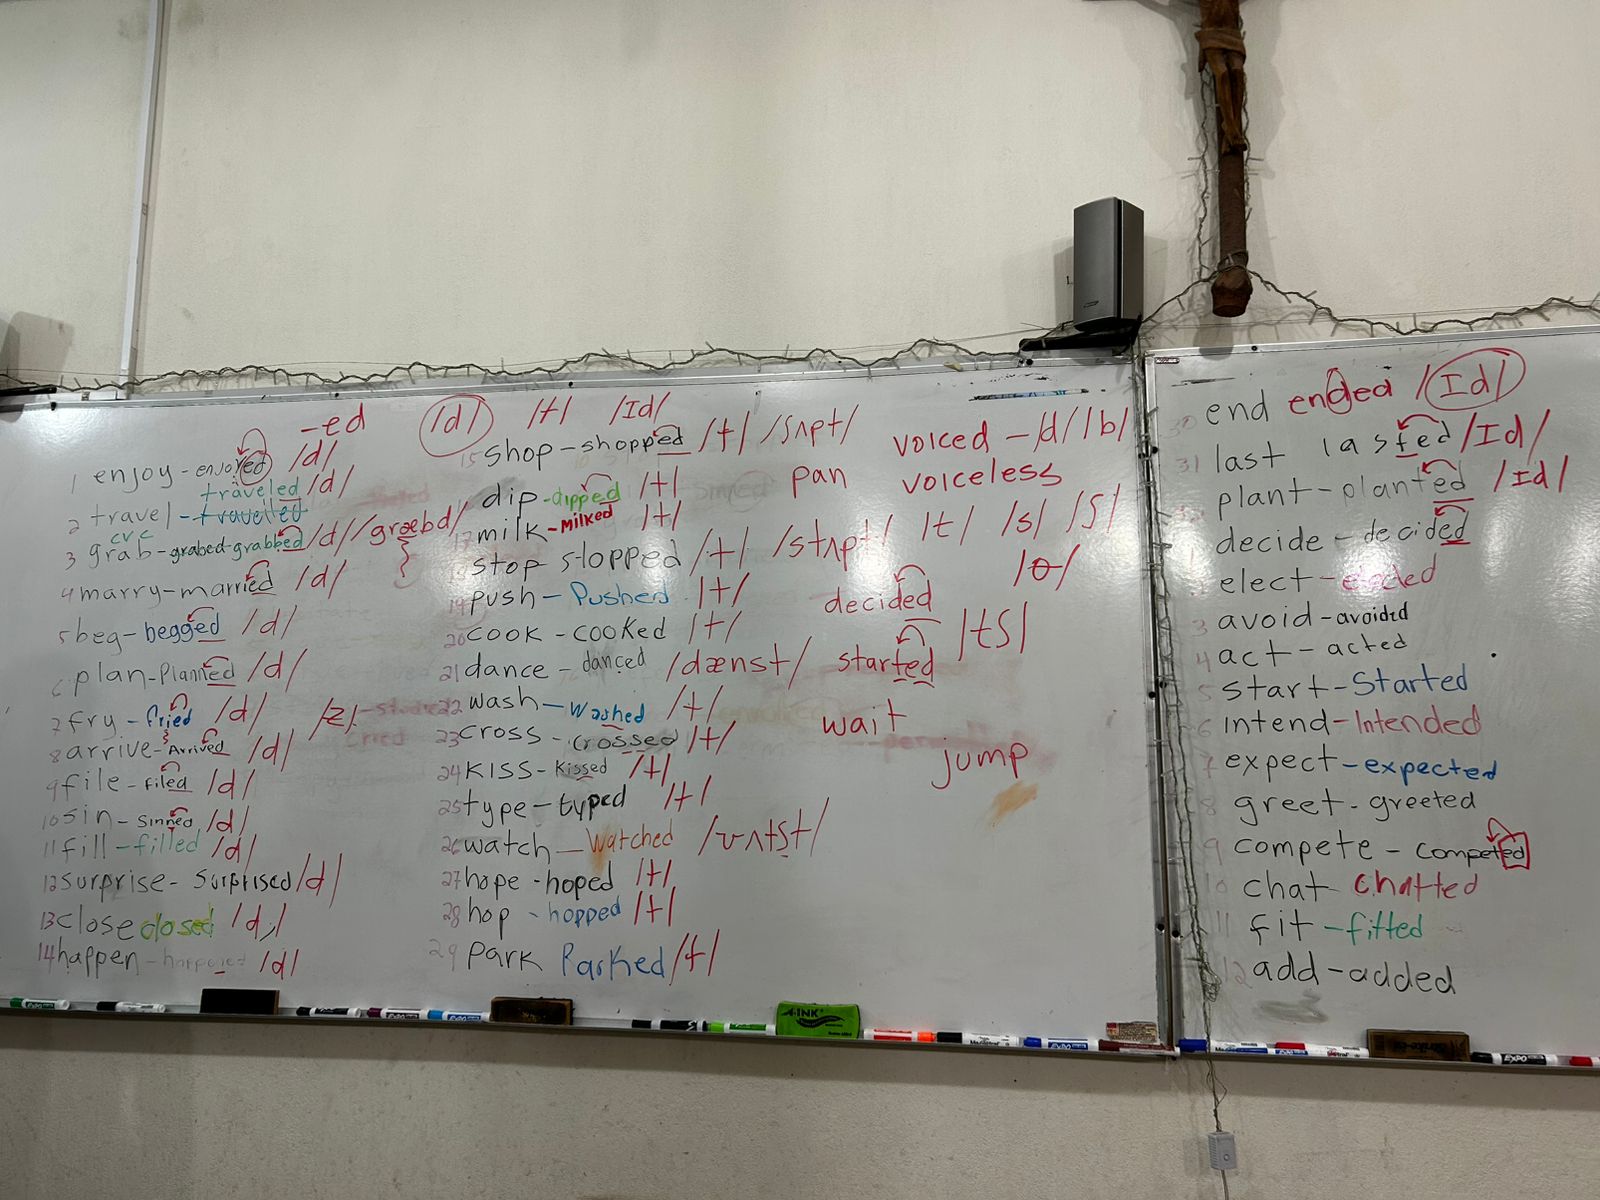 -ed /d/ /t/ /Id/
1 enjoy - enjoyed /d/
traveled /d/
2 travel - travelled
cvc
3 grab - grabed - grabbed /d/ /græbd/
4 marry - married /d/
5 beg - begged /d/
6 plan - Planned /d/
7 fry - fried /d/ /z/
8 arrive - Arrived /d/
9 file - filed /d/
10 sin - Sinned /d/
11 fill - filled /d/
12 surprise - Surprised /d/
13 close closed /d/
14 happen - happened /d/
15 shop - shopped /t/ /ʃʌpt/
dip - dipped /t/
17 milk - Milked /t/
stop stopped /t/ /stʌpt/
19 push - Pushed /t/
20 cook - cooked /t/
21 dance - danced /dænst/
22 wash - Washed /t/
23 cross - crossed /t/
24 KISS - Kissed /t/
25 type - typed /t/
26 watch - Watched /wʌtʃt/
27 hope - hoped /t/
28 hop - hopped /t/
29 Park Parked /t/
voiced - /d/ /b/
pan voiceless
/t/ /s/ /ʃ/
/θ/
decided
/tʃ/
started
wait
jump
30 end ended /Id/
31 last lasted /Id/
plant - planted /Id/
decide - decided
elect - elected
3 avoid - avoided
4 act - acted
5 start - Started
6 intend - Intended
7 expect - expected
8 greet - greeted
9 compete - competed
10 chat Chatted
11 fit - fitted
12 add - added
A-INK
EXPO
EXPO
EXPO